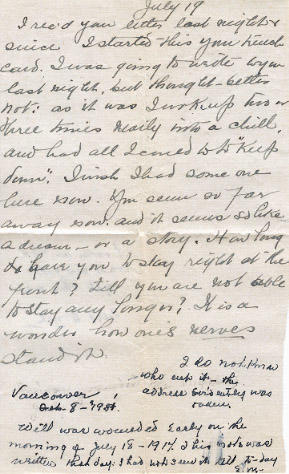 July 19
I rec'd your letter last night &
since I started this your trench
card. I was going to write to you
last night, but thought better
not: as it was I woke up two or
three times really into a chill,
and had all I could to to "keep
down". I wish I had some one
here now. You seem so far
away now. and it seems so like
a dream - or a story. How long
do have you to stay right at the
front? till you are not able
to stay any longer? It is a
wonder how one's nerves
stand it.
I do not know
who cut it - the
address evidently was
Vancouver,
Oct. 8 - 1931.
Will was wounded early on the
morning of July 18 - 1917 & this note was
written that day. I had not seen it till to-day